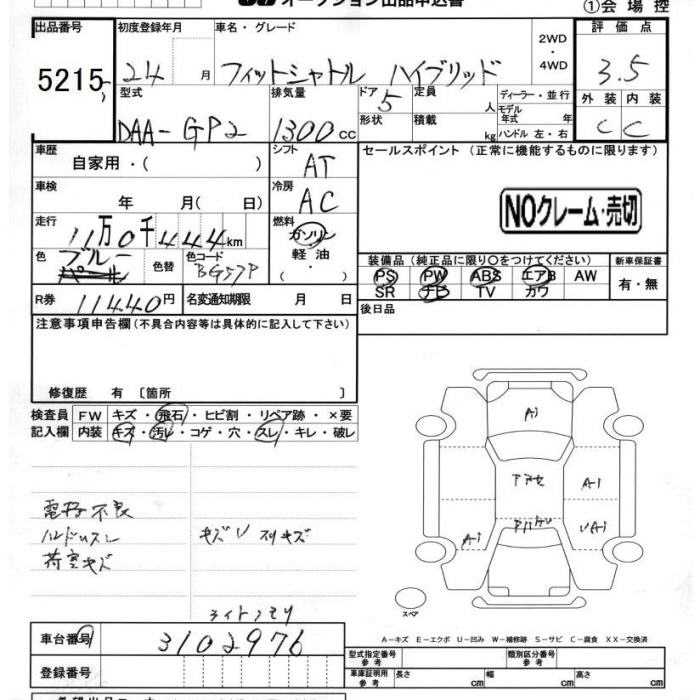 オークション出品申込書
①会場控
出品番号 初度登録年月 車名・グレード 評価点
5215 24 月 フィットシャトル ハイブリッド 2WD・4WD 3.5
型式 排気量 ドア 定員 ディーラー・並行 外装 内装
DAA-GP2 1300cc 5 人 モデル年式 年 C C
形状 積載 kg ハンドル 左・右
車歴 シフト セールスポイント (正常に機能するものに限ります)
自家用・( ) AT
車検 冷房
年 月( 日) AC NOクレーム・売切
走行 燃料
11万0千444km ガソリン
軽油
・
装備品(純正品に限り〇をつけてください) 新車保証書
色 ブルー 色替 色コード BG57P
パール
PS PW ABS エアB AW 有・無
SR ナビ TV カワ
R券 11440円 名変通知期限 月 日
後日品
注意事項申告欄(不具合内容等は具体的に記入して下さい)
修復歴 有 〔箇所 〕
検査員 FW キズ・飛石・ヒビ割・リペア跡・×要
記入欄 内装 キズ・汚レ・コゲ・穴・スレ・キレ・破レ
A1
A1
A1
UA1
不良
荷室キズ
キズU
スペア
A-キズ E-エクボ U-凹み W-補修跡 S-サビ C-腐食 XX-交換済
車台番号 3102976
登録番号
型式指定番号 参考 類別区分番号 参考
車庫証明用 参考 長さ cm 幅 cm 高さ cm